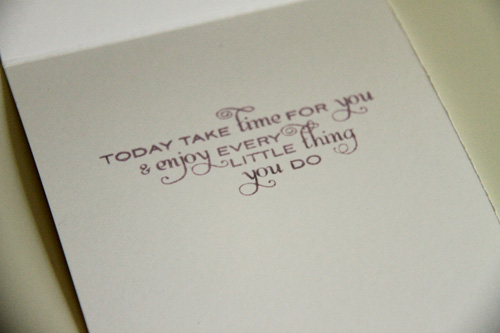 TODAY TAKE time FOR you
& enjoy EVERY thing
LITTLE
you DO